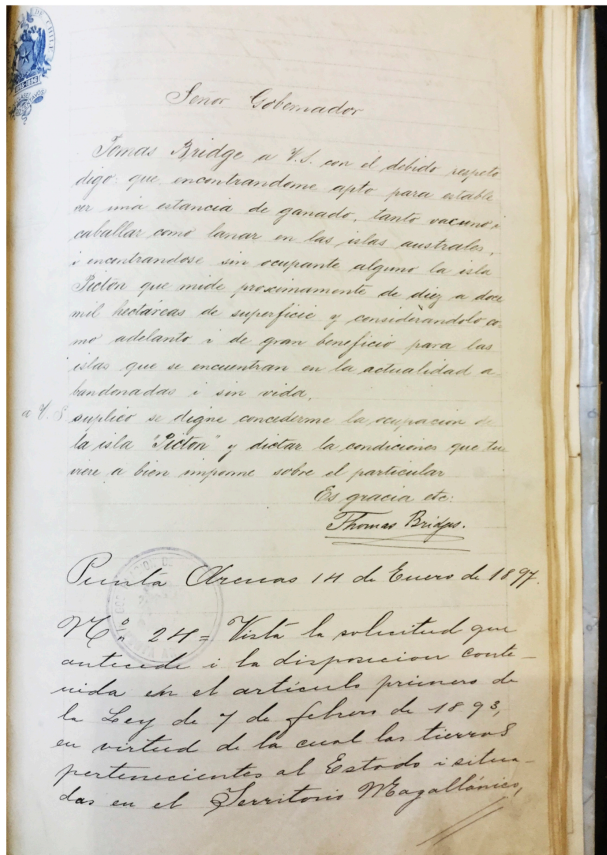 Señor Gobernador
Tomas Bridge a V.S. con el debido respeto
digo: que encontrandome apto para estable
cer una estancia de ganado, tanto vacuno i
caballar como lanar en las islas australes,
i encontrandose sin ocupante alguno la isla
Picton que mide proximamente de diez a doce
mil hectáreas de superficie y considerandolo co
mo adelanto i de gran beneficio para las
islas que se encuentran en la actualidad a
bandonadas i sin vida,
a V.S. suplico se digne concederme la ocupacion de
la isla "Picton" y dictar la condiciones que tu
viere a bien imponme sobre el particular
Es gracia etc:
Thomas Bridges.
Punta Arenas 14 de Enero de 1897.
Nº 24 = Vista la solicitud que
antecede i la disposicion conte-
nida en el artículo primero de
la Ley de 7 de febrero de 1893,
en virtud de la cual las tierras
pertenecientes al Estado i situa-
das en el Territorio Magallánico,